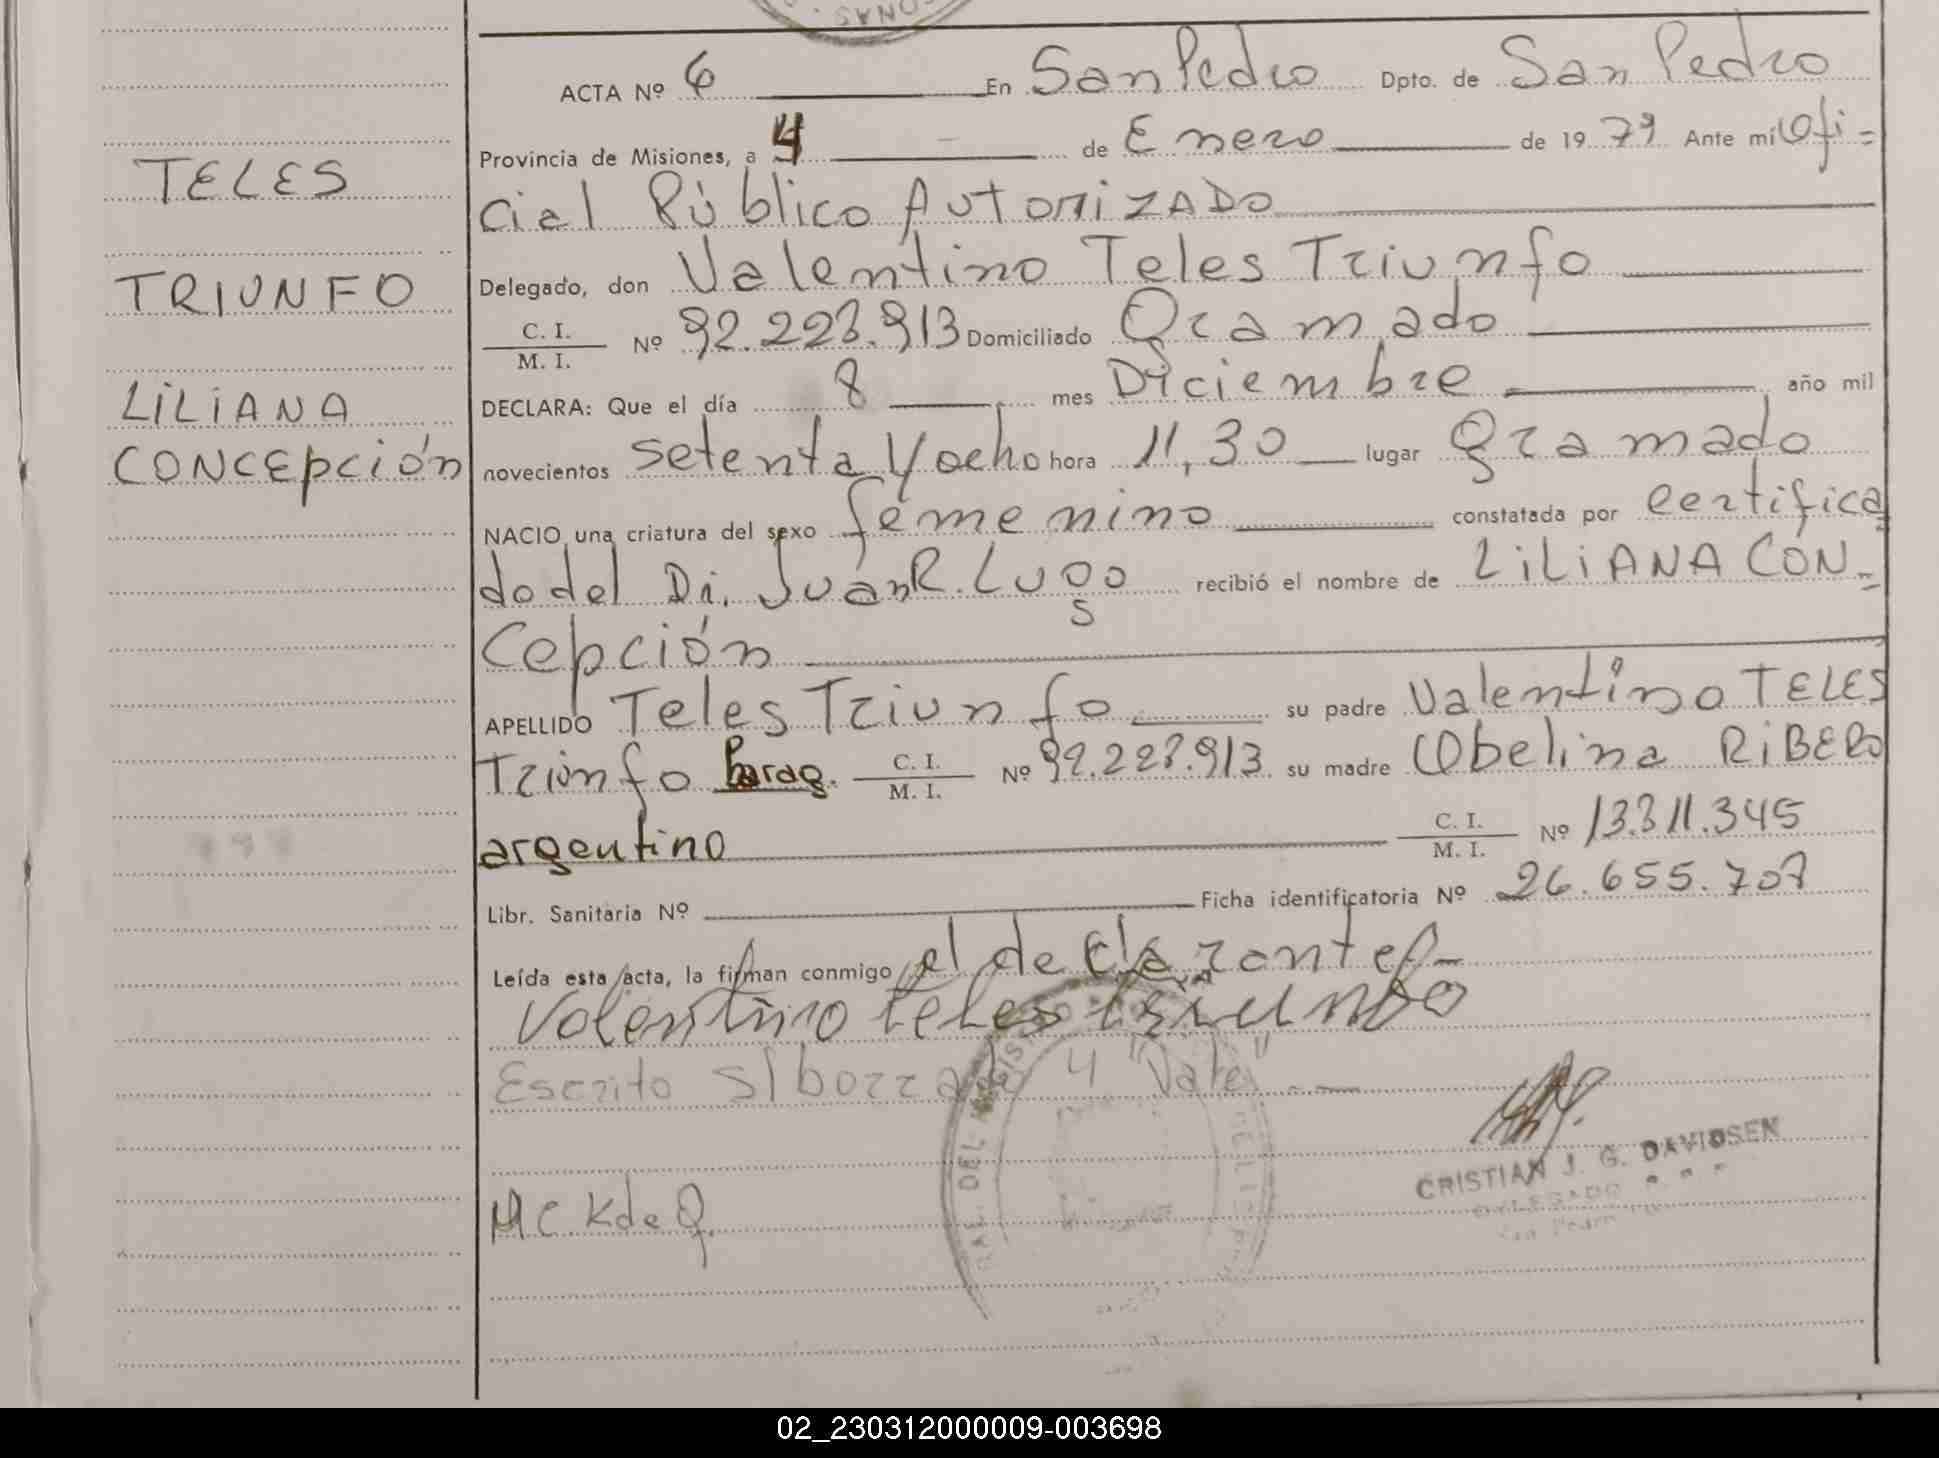 ONAS.
ACTA Nº 6 En San Pedro Dpto. de San Pedro
Provincia de Misiones, a 4 de Enero de 1979 Ante mi Ofi=
cial Público AUTORIZADO
Delegado, don Valentino Teles Triunfo
C. I.
M. I. Nº 92.223.913 Domiciliado Gramado
DECLARA: Que el día 8 mes Diciembre año mil
novecientos setenta y ocho hora 11,30 lugar gramado
NACIO una criatura del sexo femenino constatada por certifica
do del Dr. Juán R. Lugo recibió el nombre de LILIANA CON=
Cepción
APELLIDO Teles Triunfo su padre Valentino TELES
Triunfo Parag. C. I. M. I. Nº 92.223.913 su madre Obelina RIBERO
argentino C. I. M. I. Nº 13.311.345
Libr. Sanitaria Nº Ficha identificatoria Nº 26.655.707
Leída esta acta, la firman conmigo el declarante
Valentino teles triunfo
Escrito s/borrado 4 "Vale"
CRISTIAN J. G. DAVIDSEN
DELEGADO
San Pedro
M C K de Q.
TELES
TRIUNFO
LILIANA
CONCEpción
02_230312000009-003698